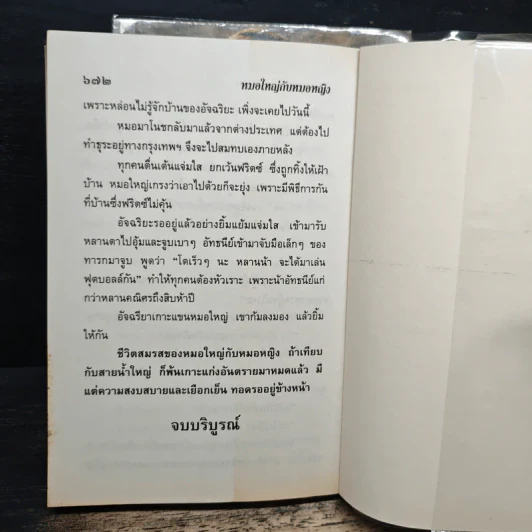 ๖๗๒
หมอใหญ่กับหมอหญิง
เพราะหล่อนไม่รู้จักบ้านของอัจฉริยะ เพิ่งจะเคยไปวันนี้
หมอมาโนชกลับมาแล้วจากต่างประเทศ แต่ต้องไป
ทำธุระอยู่ทางกรุงเทพฯ จึงจะไปสมทบเองภายหลัง
ทุกคนตื่นเต้นแจ่มใส ยกเว้นฟริตซ์ ซึ่งถูกทิ้งให้เฝ้า
บ้าน หมอใหญ่เกรงว่าเอาไปด้วยก็จะยุ่ง เพราะมีพิธีการกัน
ที่บ้านซึ่งฟริตซ์ไม่คุ้น
อัจฉริยะรออยู่แล้วอย่างยิ้มแย้มแจ่มใส เข้ามารับ
หลานตาไปอุ้มและจูบเบาๆ อัทธนีย์เข้ามาจับมือเล็กๆ ของ
ทารกมาจูบ พูดว่า “โตเร็วๆ นะ หลานน้า จะได้มาเล่น
ฟุตบอลล์กัน” ทำให้ทุกคนต้องหัวเราะ เพราะน้าอัทธนีย์แก่
กว่าหลานคณิศรถึงสิบห้าปี
อัจฉรียาเกาะแขนหมอใหญ่ เขาก้มลงมอง แล้วยิ้ม
ให้กัน
ชีวิตสมรสของหมอใหญ่กับหมอหญิง ถ้าเทียบ
กับสายน้ำใหญ่ ก็พ้นเกาะแก่งอันตรายมาหมดแล้ว มี
แต่ความสงบสบายและเยือกเย็น ทอดรออยู่ข้างหน้า
จบบริบูรณ์